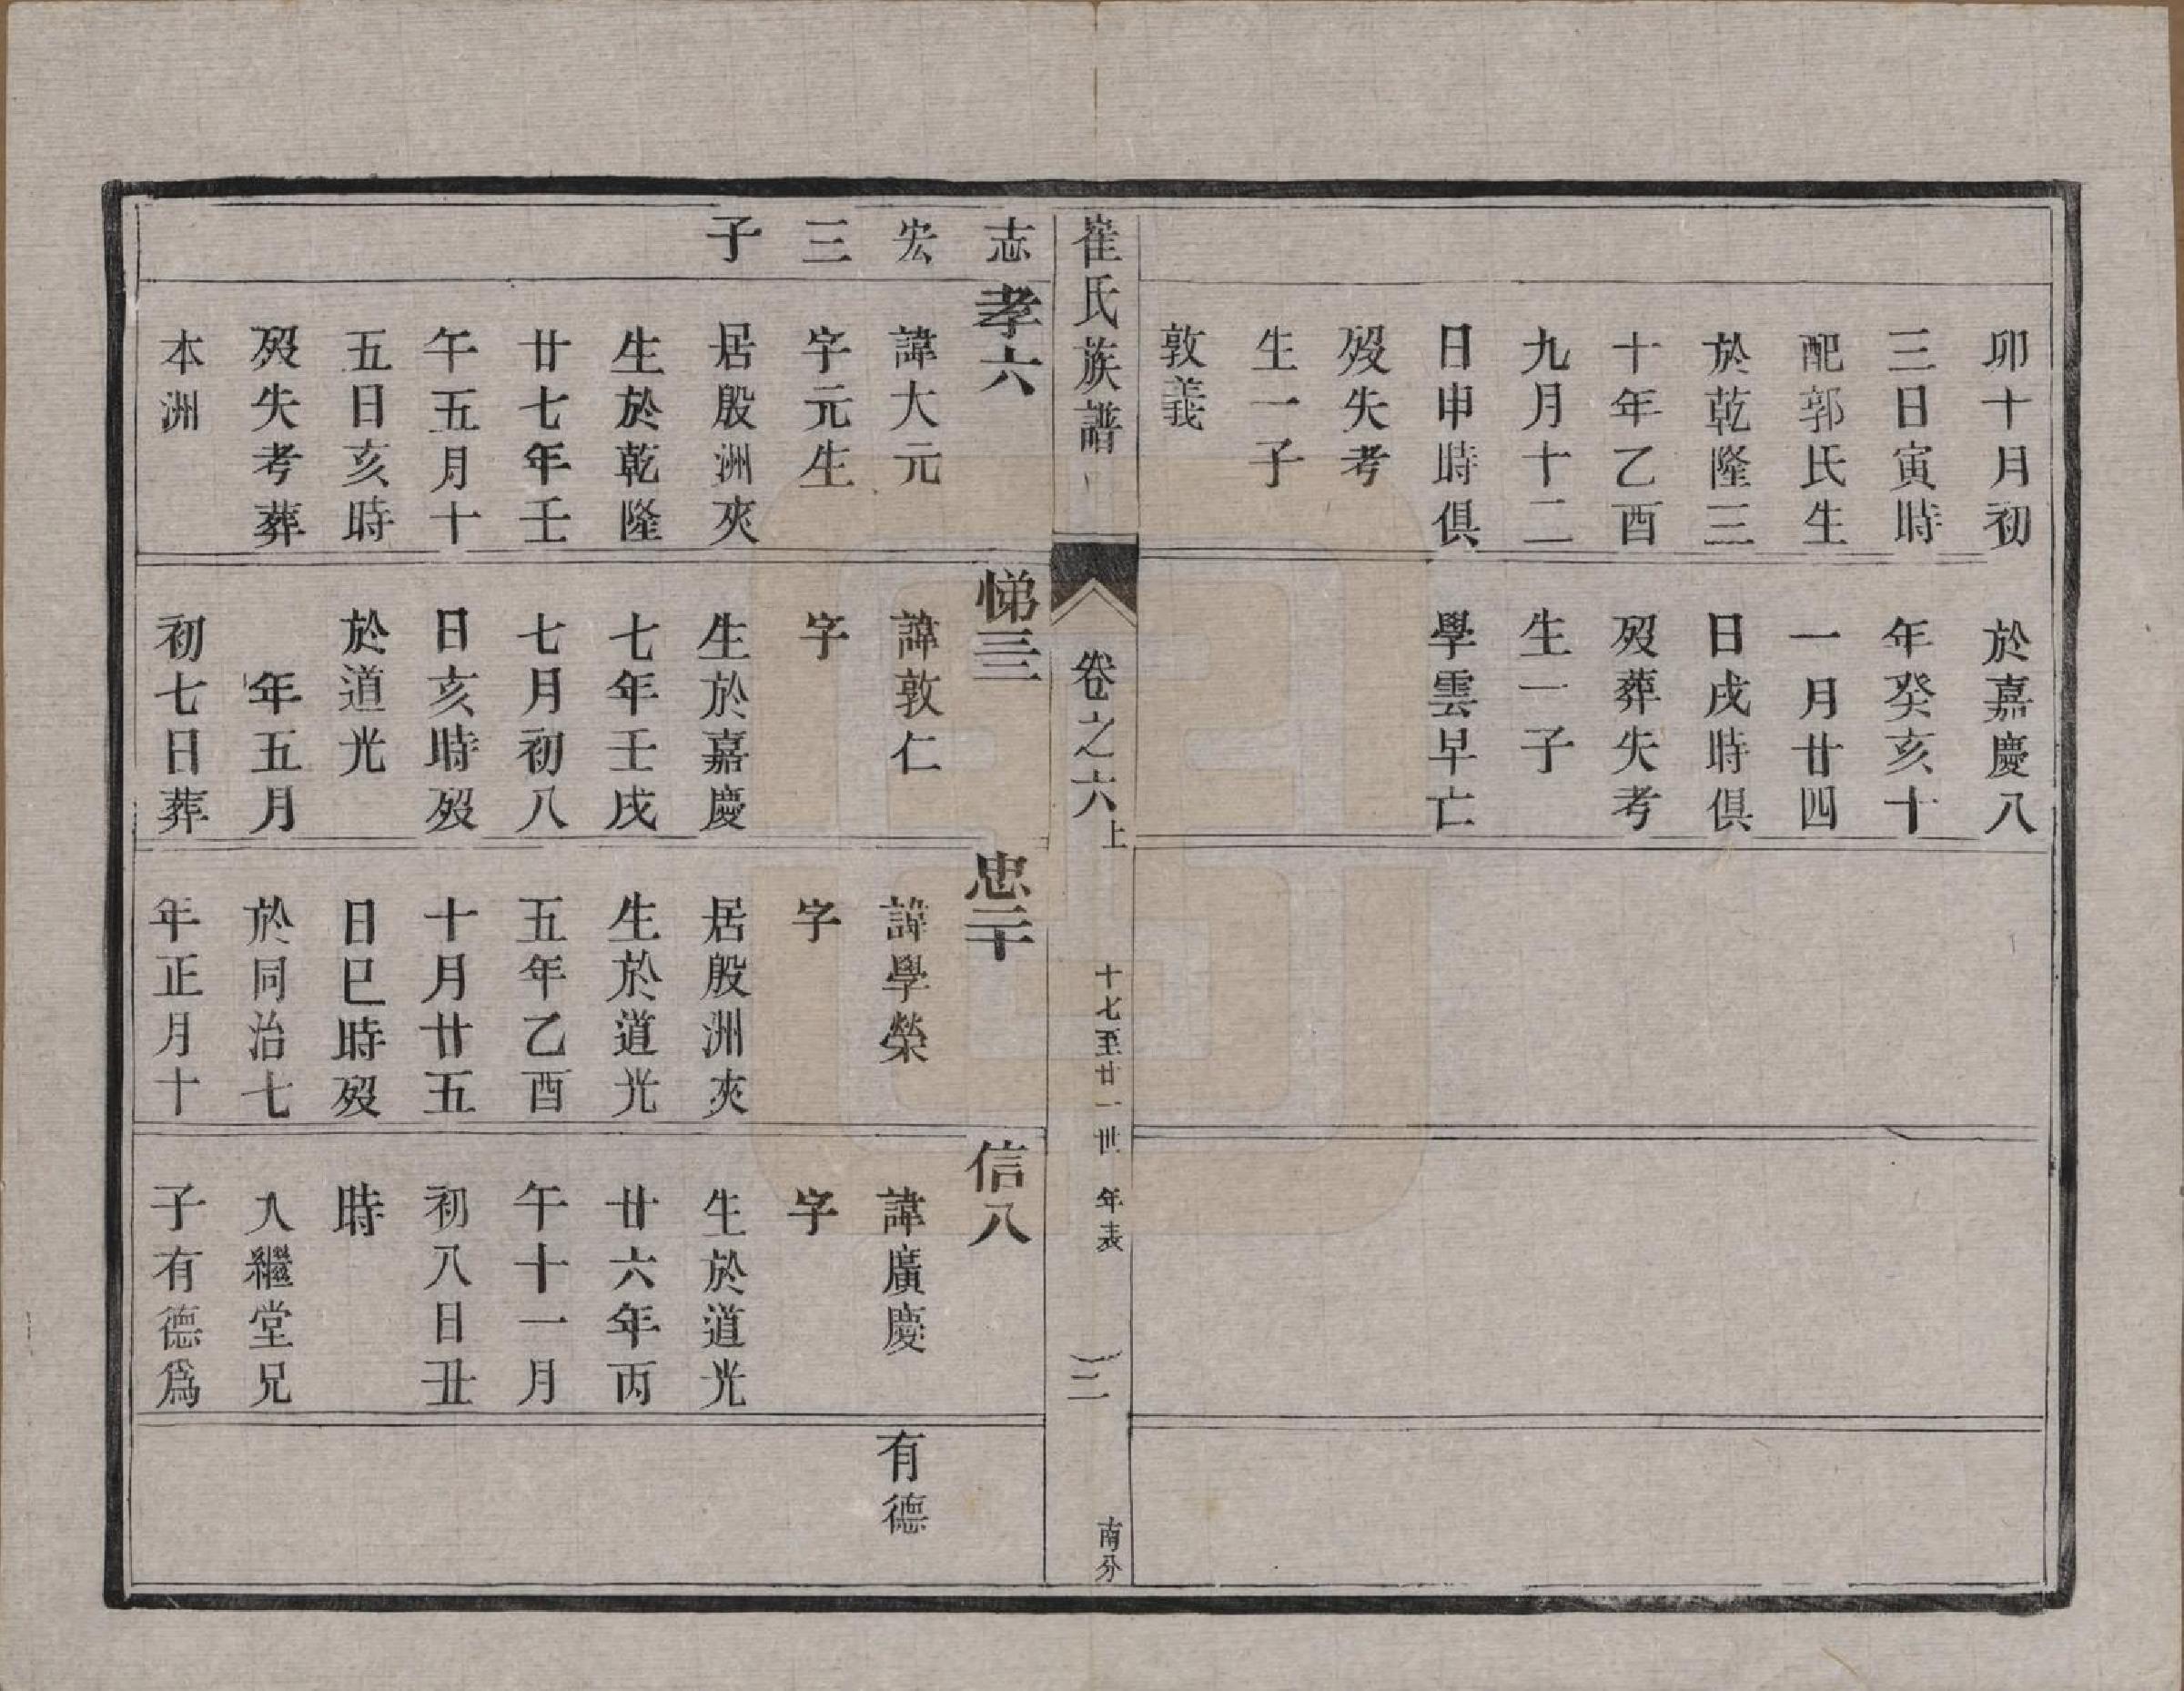 卯十月初
三日寅時
配郭氏生
於乾隆三
十年乙酉
九月十二
日申時俱
歿失考
生一子
敦義
於嘉慶八
年癸亥十
一月廿四
日戌時俱
歿葬失考
生一子
學雲早亡
崔氏族譜
卷之六上
十七至廿一世 年表
三
南分
志
宏
三
子
孝六
諱大元
字元生
居殷洲夾
生於乾隆
廿七年壬
午五月十
五日亥時
歿失考葬
本洲
悌三
諱敦仁
字
生於嘉慶
七年壬戌
七月初八
日亥時歿
於道光
年五月
初七日葬
忠二十
諱學榮
字
居殷洲夾
生於道光
五年乙酉
十月廿五
日巳時歿
於同治七
年正月十
信八
諱廣慶
字
生於道光
廿六年丙
午十一月
初八日丑
時
入繼堂兄
子有德爲
有德